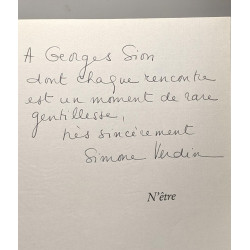 A Georges Sion
dont chaque rencontre
est un moment de rare
gentillesse,
très sincèrement
Simone Verdin
N'être